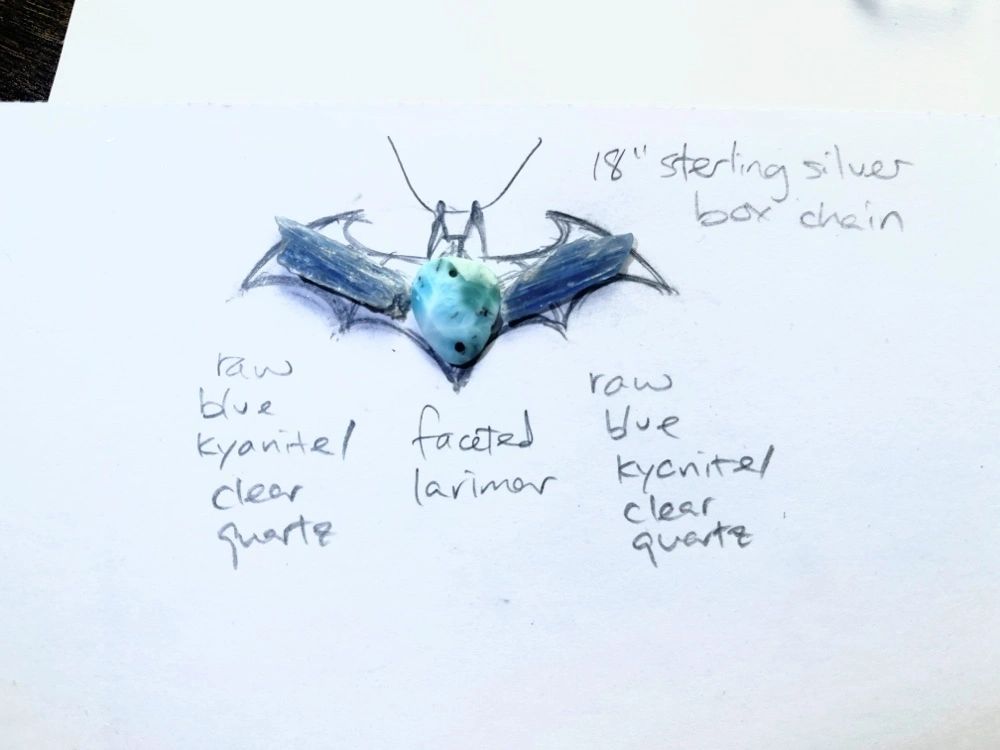 18" sterling silver
box chain
raw
blue
kyanite/
clear
quartz
faceted
larimar
raw
blue
kyanite/
clear
quartz